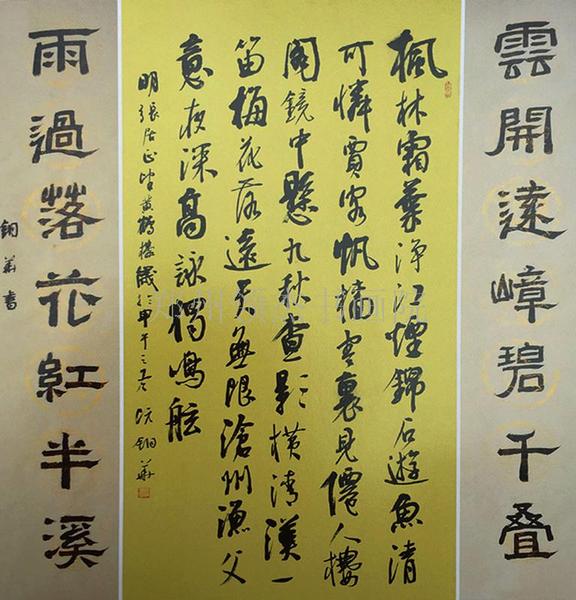 雲開遠嶂碧千叠
楓林霜葉淨江煙錦石遊魚清
可憐賈客帆檣空裏見僊人樓
閣鏡中懸九秋查影橫清漢一
笛梅花落遠天無限滄州漁父
意夜深高詠獨鳴舷
明張居正望黃鶴樓歲於甲午之 銅華
雨過落花紅半溪
銅華書